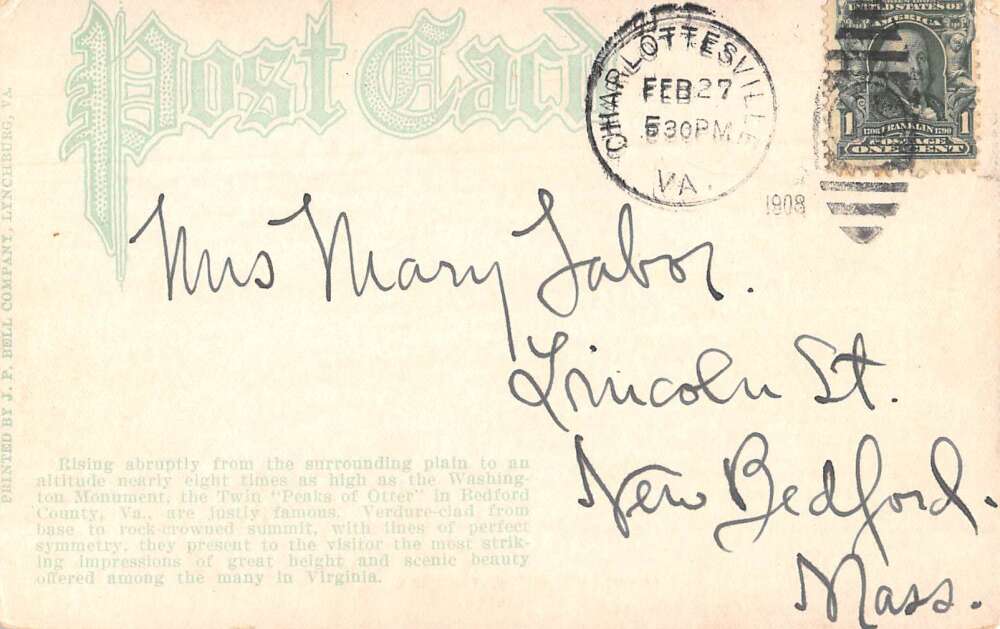 Post Card
CHARLOTTESVILLE
FEB 27
530PM
VA.
1908
UNITED STATES OF
AMERICA
1 1706 FRANKLIN 1790 1
POSTAGE
ONE CENT
Mrs Mary Tabor.
Lincoln St.
New Bedford.
Mass.
Rising abruptly from the surrounding plain to an
altitude nearly eight times as high as the Washing-
ton Monument, the Twin "Peaks of Otter" in Bedford
County, Va., are justly famous. Verdure-clad from
base to rock-crowned summit, with lines of perfect
symmetry, they present to the visitor the most strik-
ing impressions of great height and scenic beauty
offered among the many in Virginia.
PRINTED BY J. P. BELL COMPANY, LYNCHBURG, VA.